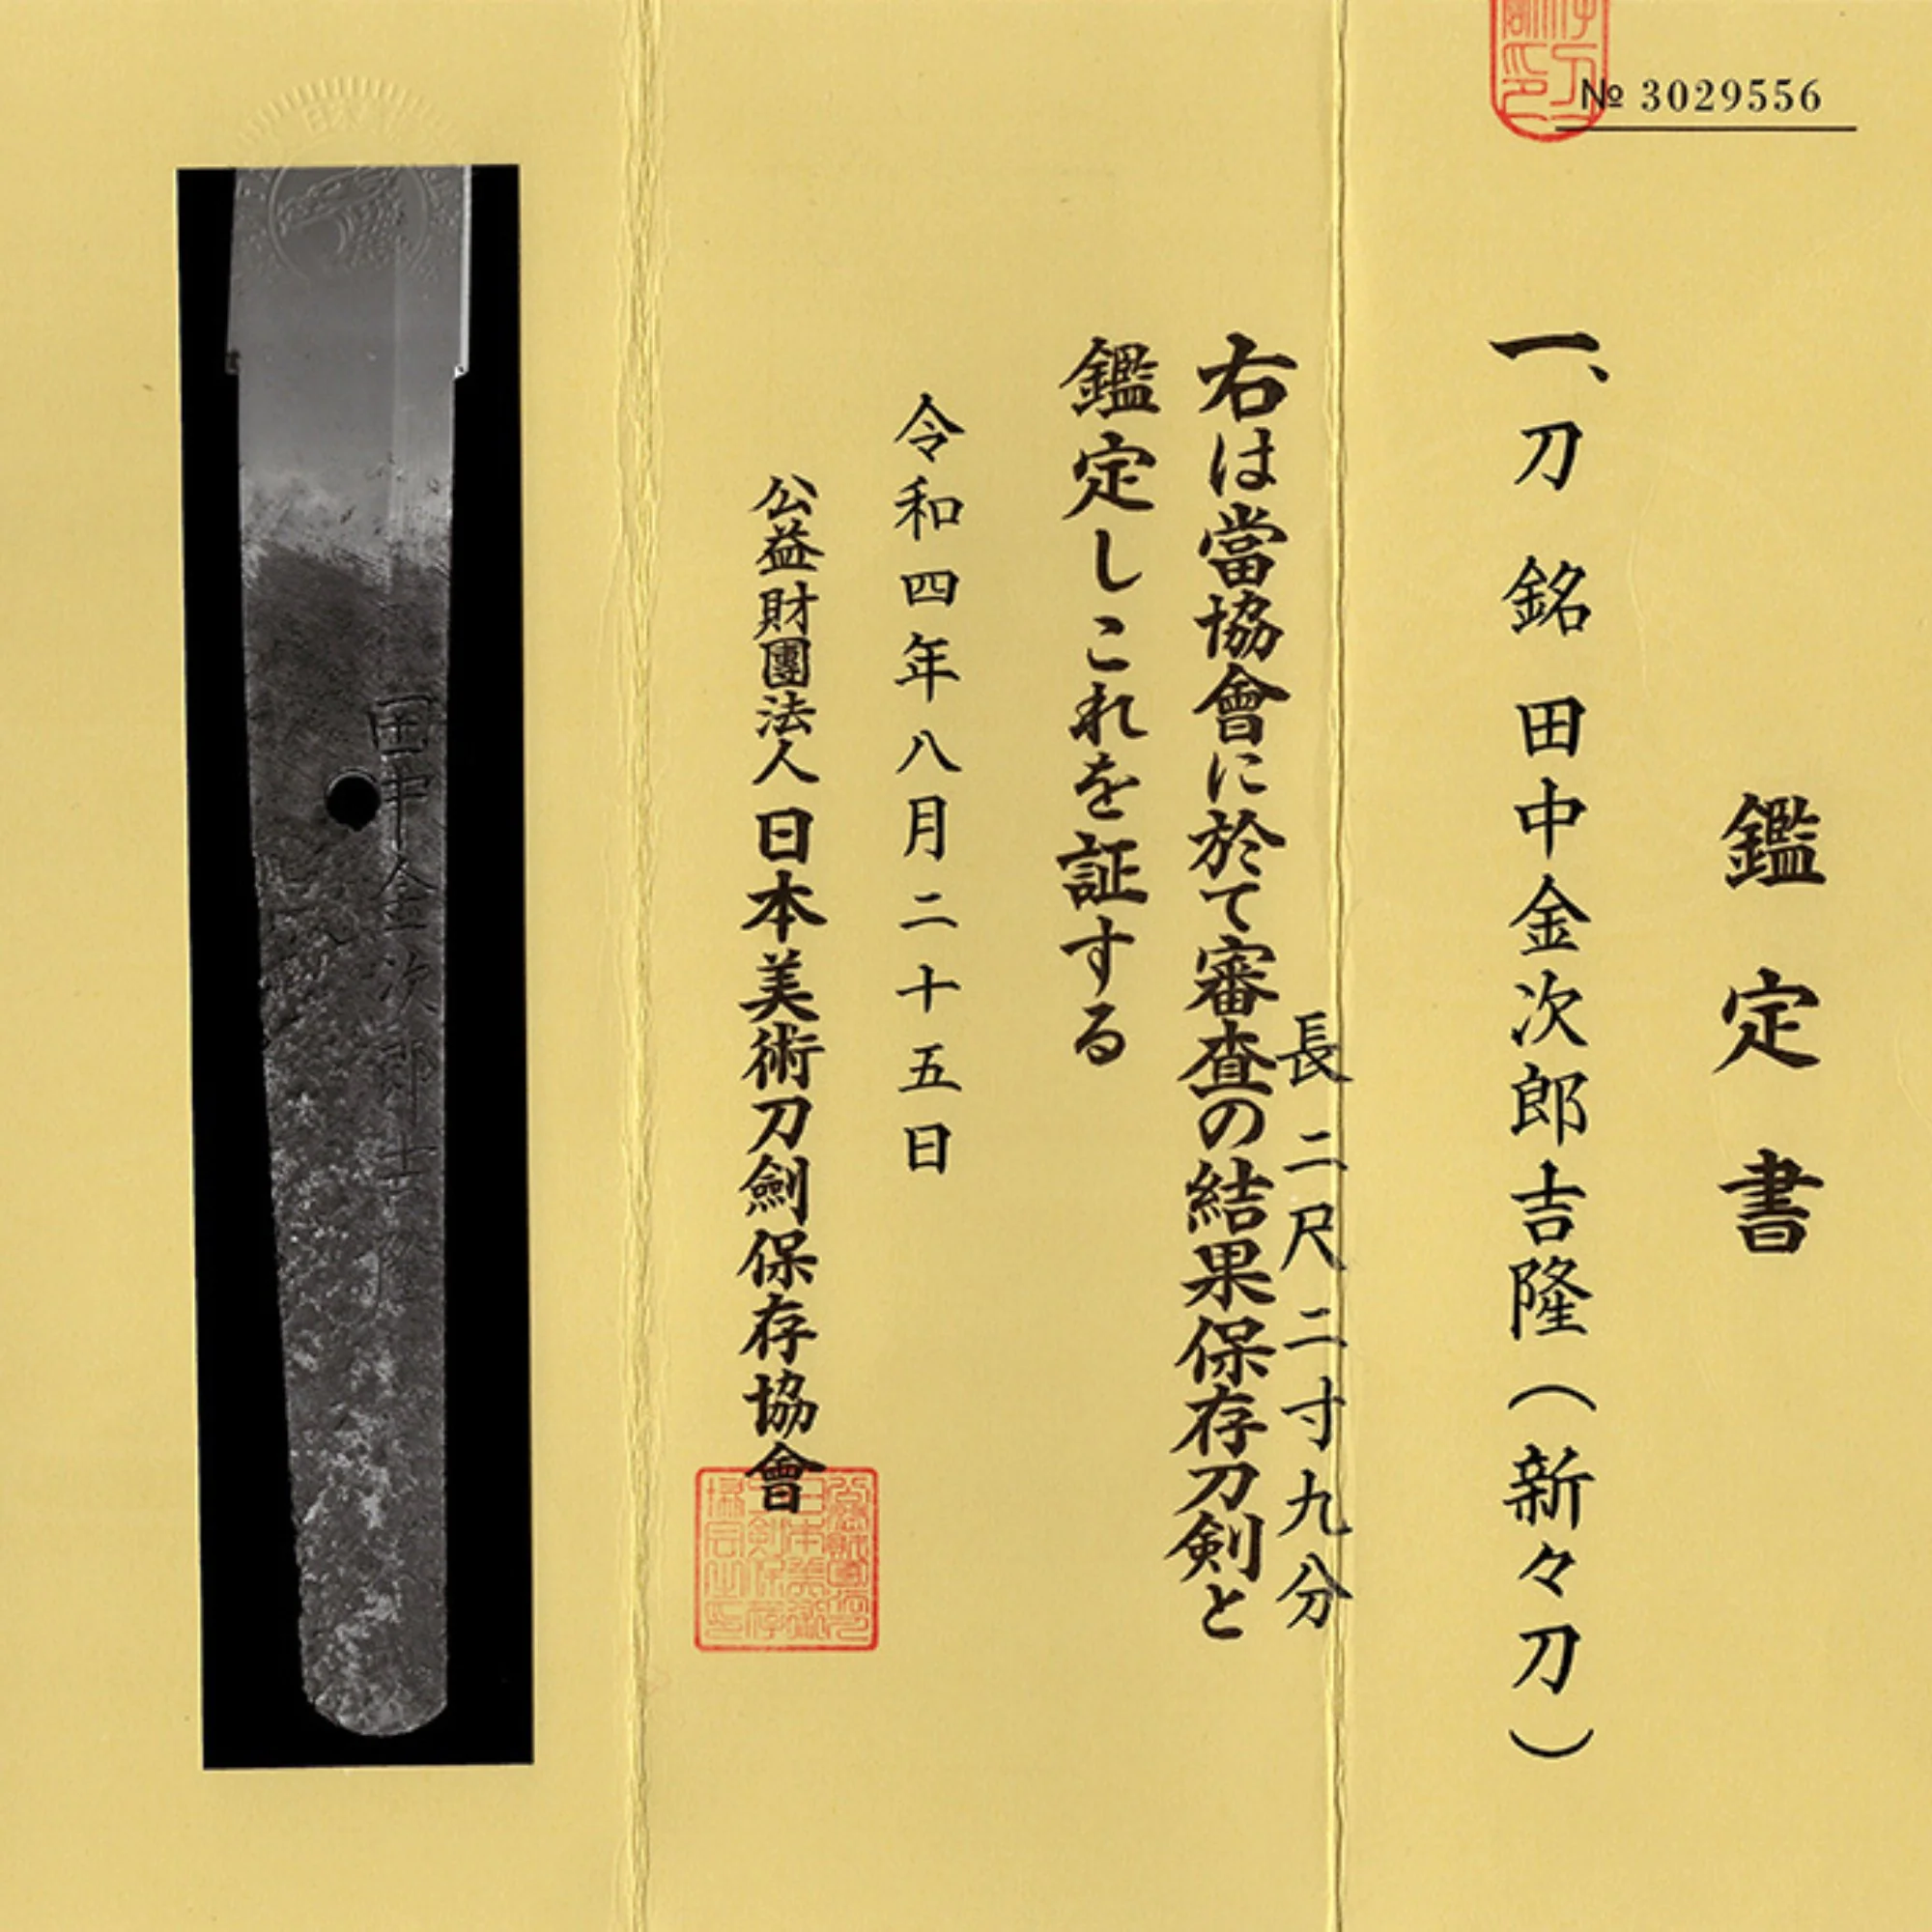 № 3029556
鑑定書
一、刀 銘 田中金次郎吉隆(新々刀)
長 二尺二寸九分
右は當協會に於て審査の結果保存刀剣と
鑑定しこれを証する
令和四年八月二十五日
公益財團法人日本美術刀劍保存協會
田中金次郎吉隆